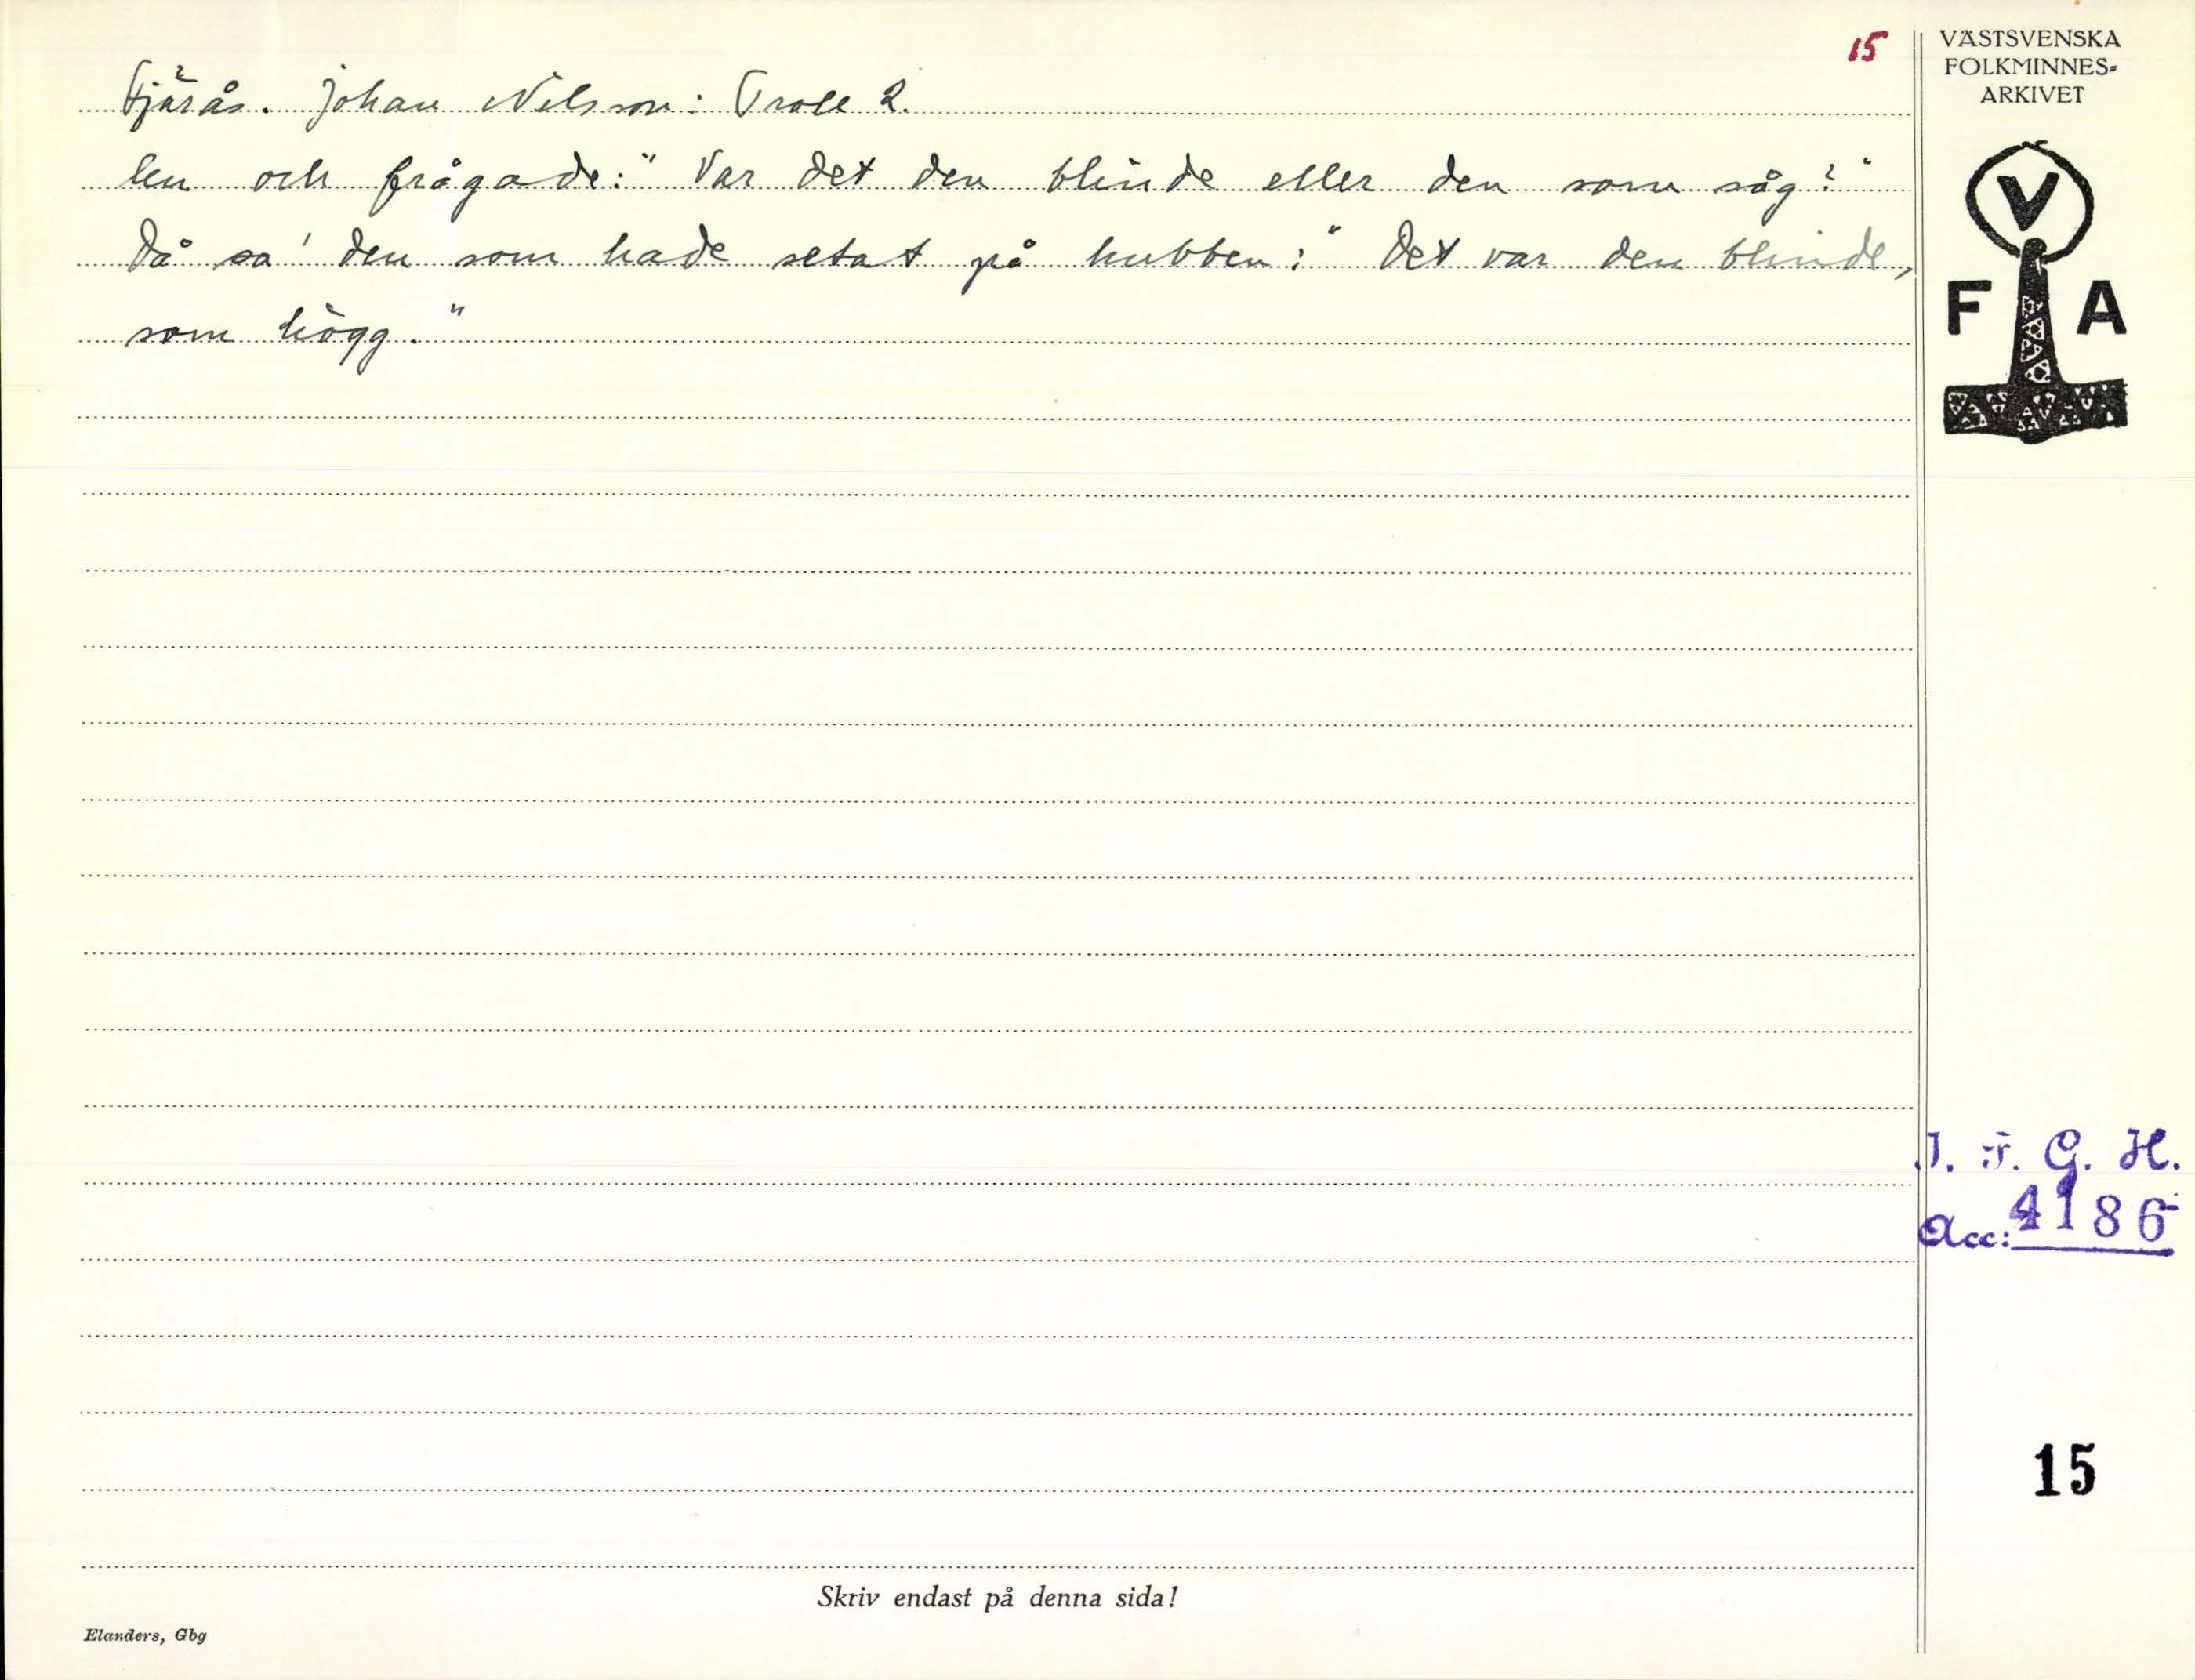 15
Fjärås. Johan Nilsson: Troll 2.
len och frågade: "Var det den blinde eller den som såg?"
Då sa' den som hade setat på hubben: "Det var den blinde,
som högg."
VÄSTSVENSKA
FOLKMINNES-
ARKIVET
V
F A
I. F. G. H.
Acc: 4186
15
Skriv endast på denna sida!
Elanders, Gbg